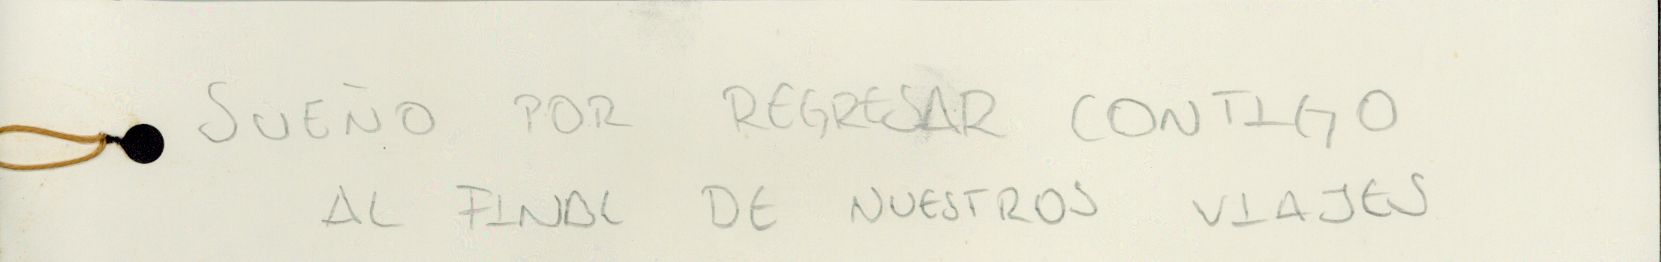 SUEÑO POR REGRESAR CONTIGO
AL FINAL DE NUESTROS VIAJES